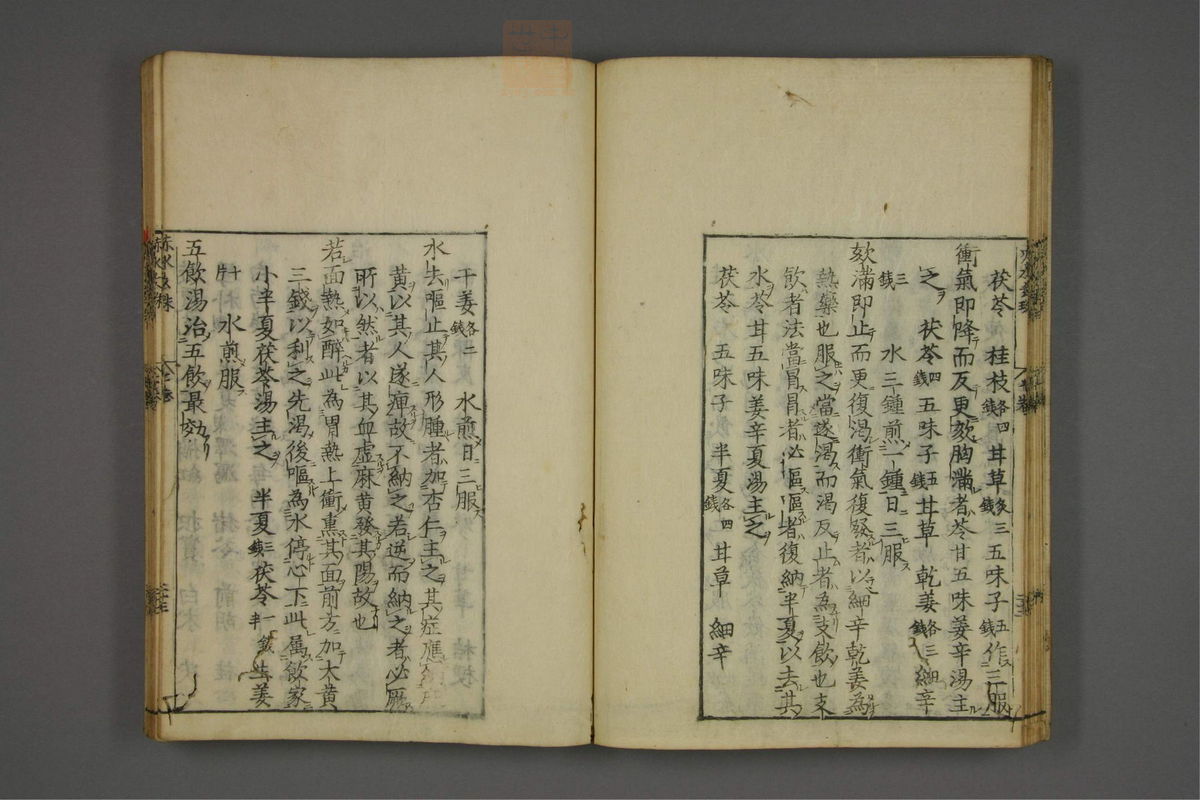 茯苓 桂枝各四錢 甘草炙三錢 五味子五錢 作三服
衝氣即降而反更欬胸滿者苓甘五味姜辛湯主
之 茯苓四錢 五味子五錢 甘草 乾姜各三錢 細辛
三錢 水三鍾煎一鍾日三服
欬滿即止而更復渴衝氣復發者以細辛乾姜為
熱藥也服之當遂渴而渴反止者為支飲也支
飲者法當冒冒者必嘔嘔者復納半夏以去其
水苓甘五味姜辛夏湯主之
茯苓 五味子 半夏各四錢 甘草 細辛
干姜各二錢 水煎日三服
水去嘔止其人形腫者加杏仁主之其症應
黄以其人遂痺故不納之若逆而納之者必厥
所以然者以其血虚麻黄發其陽故也
若面熱如醉此為胃熱上衝熏其面前方加大黄
三錢以利之先渴後嘔為水停心下此属飲家
小半夏茯苓湯主之 半夏三錢 茯苓一錢半 生姜
十片 水煎服
五飲湯治五飲最効